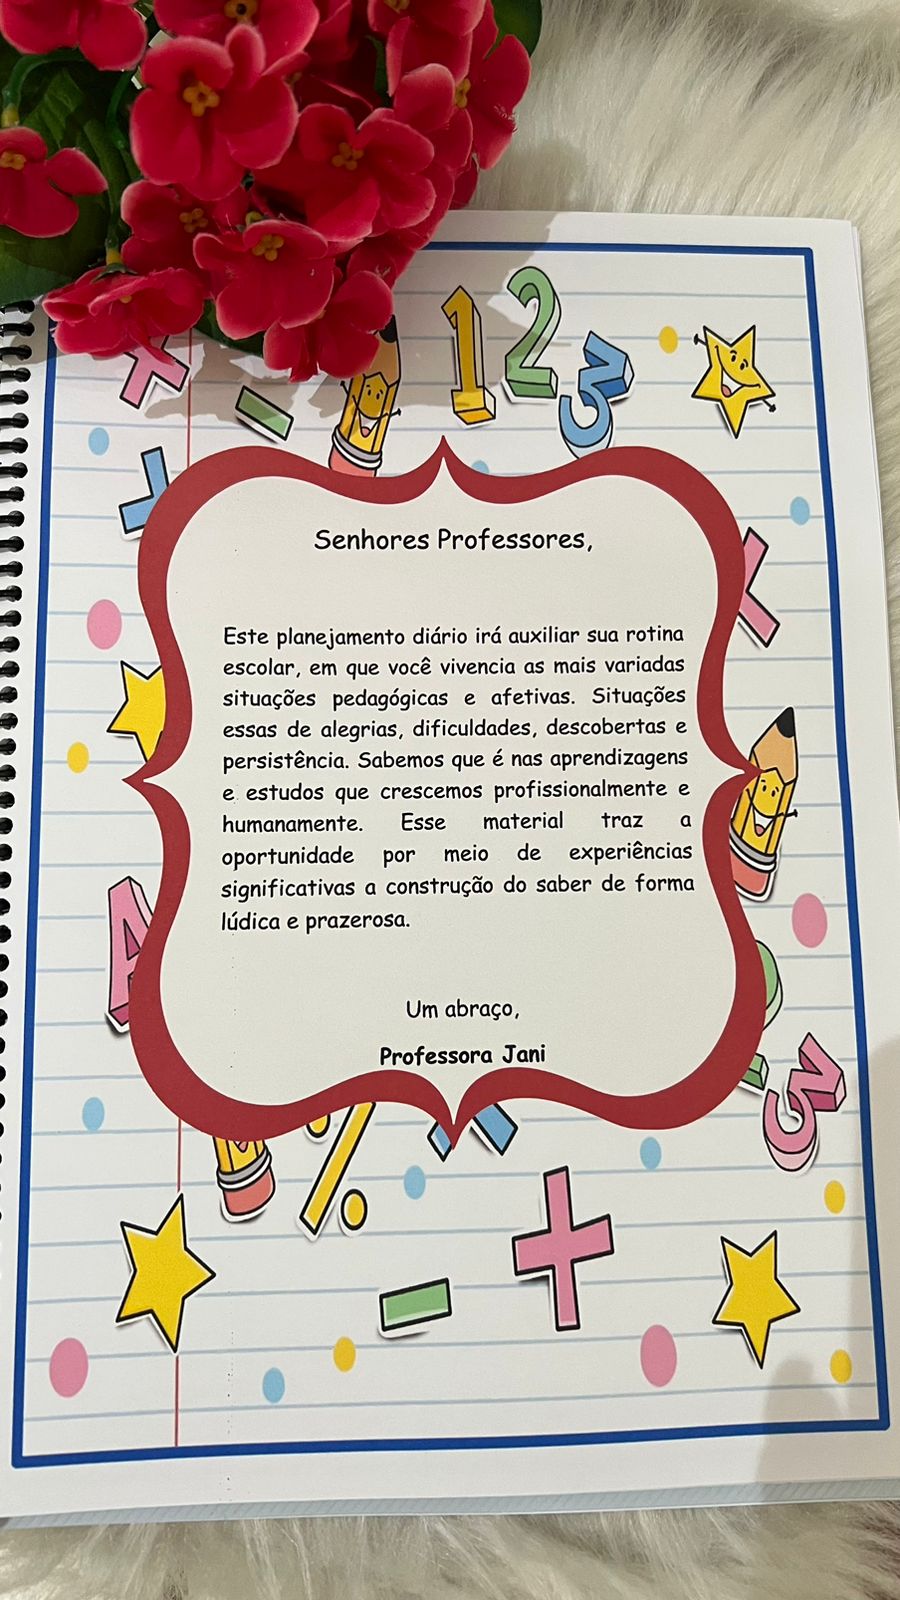 1 2 3
Senhores Professores,
Este planejamento diário irá auxiliar sua rotina
escolar, em que você vivencia as mais variadas
situações pedagógicas e afetivas. Situações
essas de alegrias, dificuldades, descobertas e
persistência. Sabemos que é nas aprendizagens
e estudos que crescemos profissionalmente e
humanamente. Esse material traz a
oportunidade por meio de experiências
significativas a construção do saber de forma
lúdica e prazerosa.
A
Um abraço,
Professora Jani
3
% 
- +